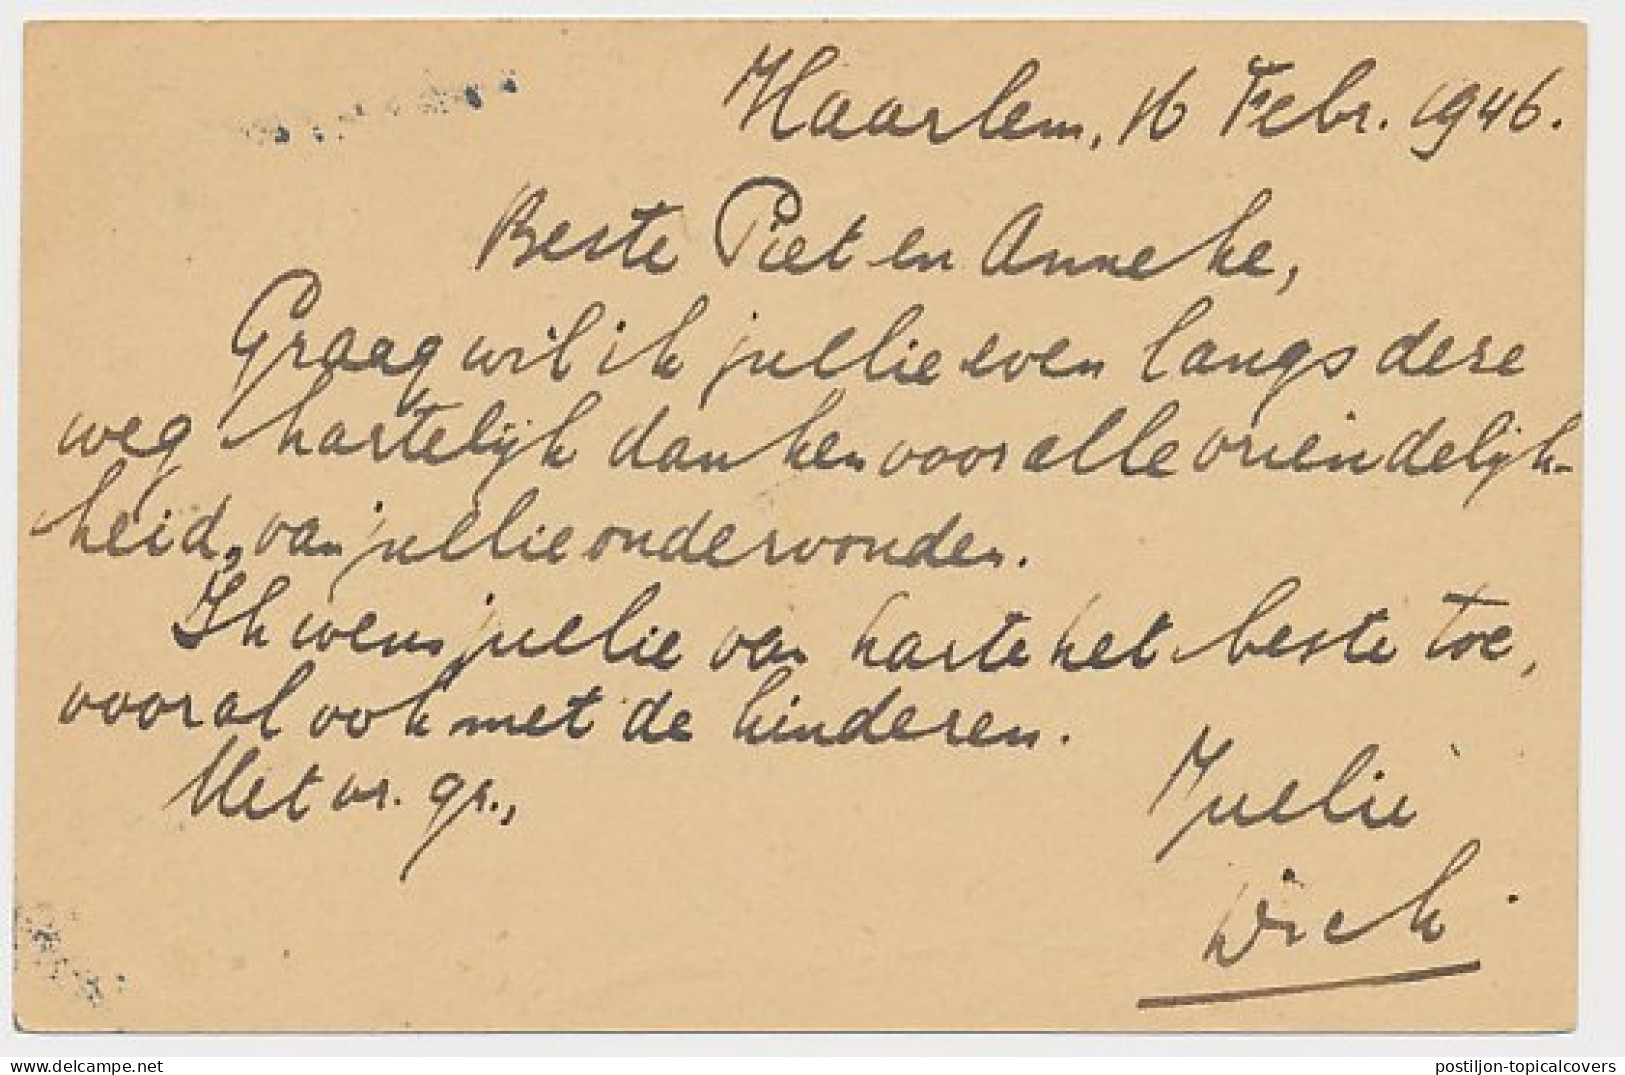 Haarlem, 16 Febr. 1946.
Beste Piet en Anneke,
Graag wil ik jullie even langs deze
weg hartelijk danken voor alle vriendelijk-
heid, van jullie ondervonden.
Ik wens jullie van harte het beste toe,
vooral ook met de kinderen.
Met vr. gr.,
Jullie
Dick.
postiljon-topicalcovers